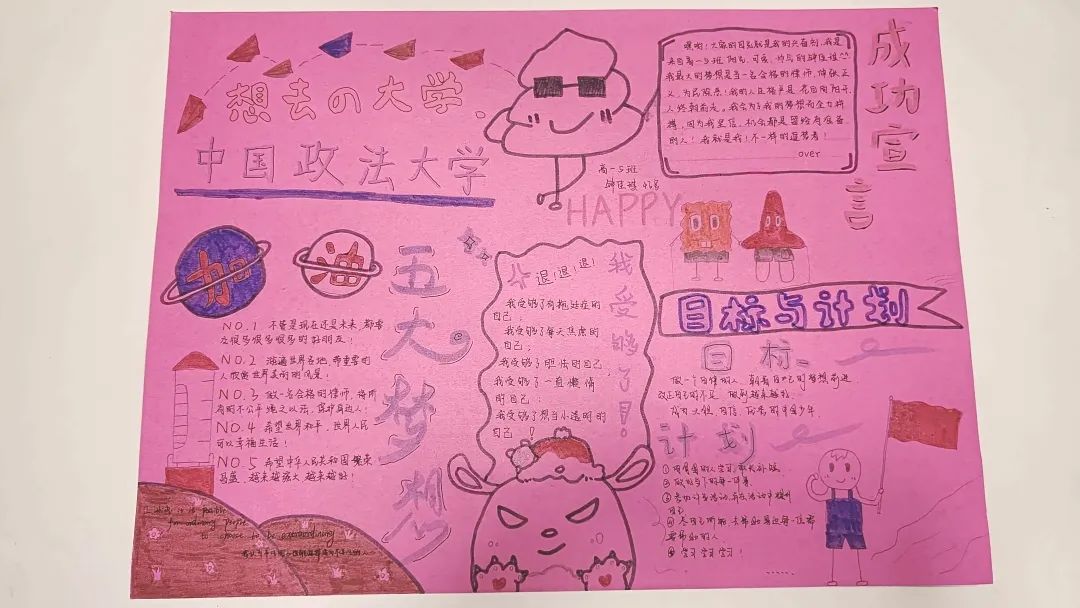 想去の大学.
中国政法大学
成功宣言
嘿哟!大家的目光就是我的兴奋剂,我是
来自高一5班阳光,可爱,
我最大的梦想是当一名合格的律师,伸张正
义,为民服务!我的人生格言是:
人终朝前走。我会为了我的梦想而全力拼
搏,因为我坚信,机会都是留给有准备
的人!我就是我!不一样的
over
高一5班
HAPPY
加油
五大梦想
NO.1 不管是现在还是未来,都要
友很多很多很多的好朋友!
NO.2 游遍世界各地,带重要的
人欣赏世界美丽的风景!
NO.3 做一名合格的律师,将所
有的不公平绳之以法,保护身边人!
NO.4 希望世界和平,世界人民
可以幸福生活!
NO.5 希望中华人民共和国繁荣
昌盛,越来越强大越来越好!
it is possible
for ordinary people
to choose to be extraordinary
我受够了!
退!退!退!
我受够了有拖延症的
自己;
我受够了每天焦虑的
自己;
我受够了胆怯的自己;
我受够了一直懒惰
的自己;
我受够了想当小透明的
自己!
目标与计划
目标
做一个自律的人,朝着自己的梦想前进.
改正自己的不足,做到越来越好.
成为火热,自信,
计划
①用自习的
②做好当下的每一件事.
③
自己
④尽自己所能去帮助身边每一位需
要帮助的人
⑤学习学习学习!